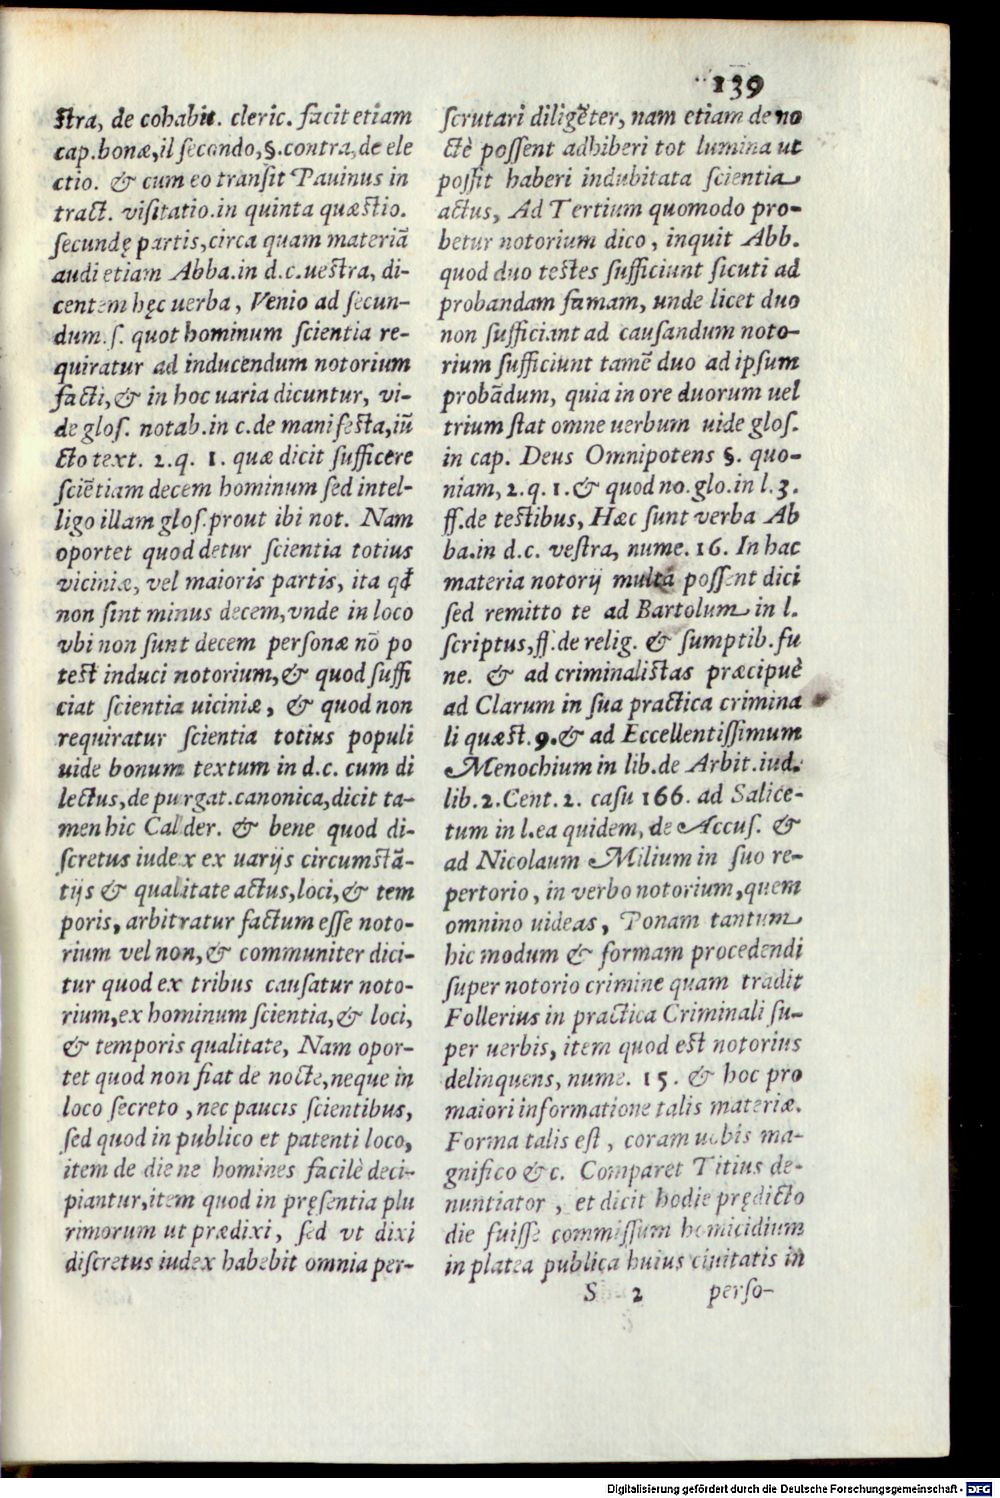 139
ſtra, de cohabit. cleric. facit etiam
cap.bonæ,il ſecondo,§.contra,de ele
ctio. & cum eo tranſit Pauinus in
tract. viſitatio.in quinta quæſtio.
ſecundę partis,circa quam materiā
audi etiam Abba.in d.c.ueſtra, di-
centem hęc uerba, Venio ad ſecun-
dum.ſ. quot hominum ſcientia re-
quiratur ad inducendum notorium
facti,& in hoc uaria dicuntur, vi-
de gloſ. notab.in c.de manifeſta,iū
cto text. 2.q. 1. quæ dicit ſufficere
ſciētiam decem hominum ſed intel-
ligo illam gloſ.prout ibi not. Nam
oportet quod detur ſcientia totius
viciniæ, vel maioris partis, ita qđ
non ſint minus decem,vnde in loco
vbi non ſunt decem perſonæ nō po
teſt induci notorium,& quod ſuffi
ciat ſcientia uiciniæ, & quod non
requiratur ſcientia totius populi
uide bonum textum in d.c. cum di
lectus,de purgat.canonica,dicit ta-
men hic Calder. & bene quod di-
ſcretus iudex ex uarijs circumſtā-
tijs & qualitate actus,loci,& tem
poris, arbitratur factum eſſe noto-
rium vel non,& communiter dici-
tur quod ex tribus cauſatur noto-
rium,ex hominum ſcientia,& loci,
& temporis qualitate, Nam opor-
tet quod non fiat de nocte,neque in
loco ſecreto ,nec paucis ſcientibus,
ſed quod in publico et patenti loco,
item de die ne homines facilè deci-
piantur,item quod in pręſentia plu
rimorum ut prædixi, ſed vt dixi
diſcretus iudex habebit omnia per-
ſcrutari diligēter, nam etiam de no
ctè poſſent adhiberi tot lumina ut
poſſit haberi indubitata ſcientia
actus, Ad Tertium quomodo pro-
betur notorium dico, inquit Abb.
quod duo teſtes ſufficiunt ſicuti ad
probandam famam, unde licet duo
non ſufficiant ad cauſandum noto-
rium ſufficiunt tamē duo ad ipſum
probādum, quia in ore duorum uel
trium ſtat omne uerbum uide gloſ.
in cap. Deus Omnipotens §. quo-
niam, 2.q. 1.& quod no.glo.in l.3.
ff.de teſtibus, Hæc ſunt verba Ab
ba.in d.c. veſtra, nume.16. In hac
materia notorij multa poſſent dici
ſed remitto te ad Bartolum in l.
ſcriptus,ff.de relig. & ſumptib.fu
ne. & ad criminaliſtas præcipuè
ad Clarum in ſua practica crimina
li quæſt.9.& ad Eccellentiſſimum
Menochium in lib.de Arbit.iud.
lib.2.Cent.2. caſu 166. ad Salice-
tum in l.ea quidem, de Accuſ. &
ad Nicolaum Milium in ſuo re-
pertorio, in verbo notorium,quem
omnino uideas, Ponam tantum
hic modum & formam procedendi
ſuper notorio crimine quam tradit
Follerius in practica Criminali ſu-
per uerbis, item quod eſt notorius
delinquens, nume. 15. & hoc pro
maiori informatione talis materiæ.
Forma talis eſt, coram uobis ma-
gnifico &c. Comparet Titius de-
nuntiator, et dicit hodie prędicto
die fuiſſe commiſſum homicidium
in platea publica huius ciuitatis in
S 2 perſo-
Digitalisierung gefördert durch die Deutsche Forschungsgemeinschaft - DFG